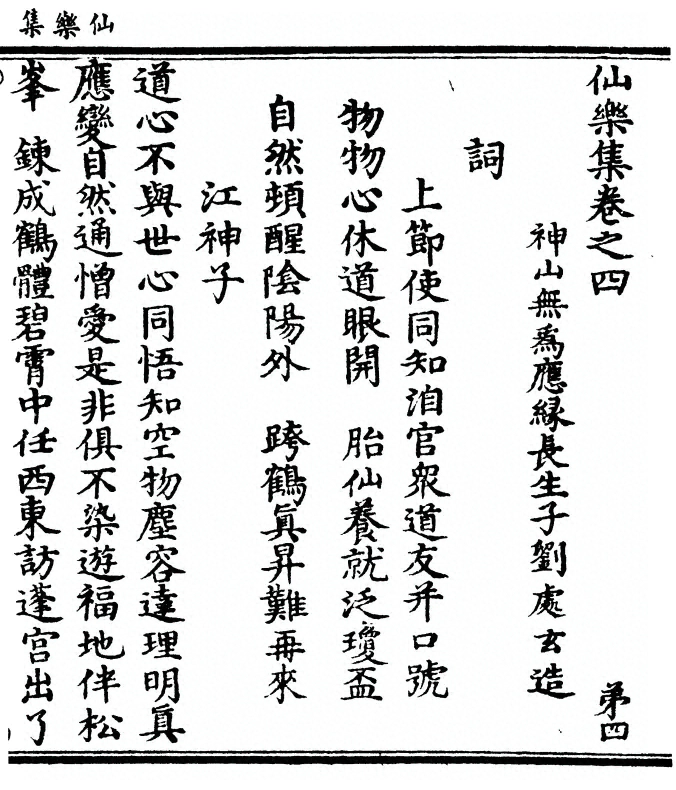 仙樂集
仙樂集卷之四　第四
神山無為應緣長生子劉處玄造
詞
上節使同知洎官衆道友并口號
物物心休道眼開　胎仙養就泛瓊盃
自然頓醒陰陽外　跨鶴眞昇難再來
江神子
道心不與世心同悟知空物塵容達理明眞
應變自然通憎愛是非俱不染遊福地伴松
峯　鍊成鶴體碧霄中任西東訪蓬宫出了